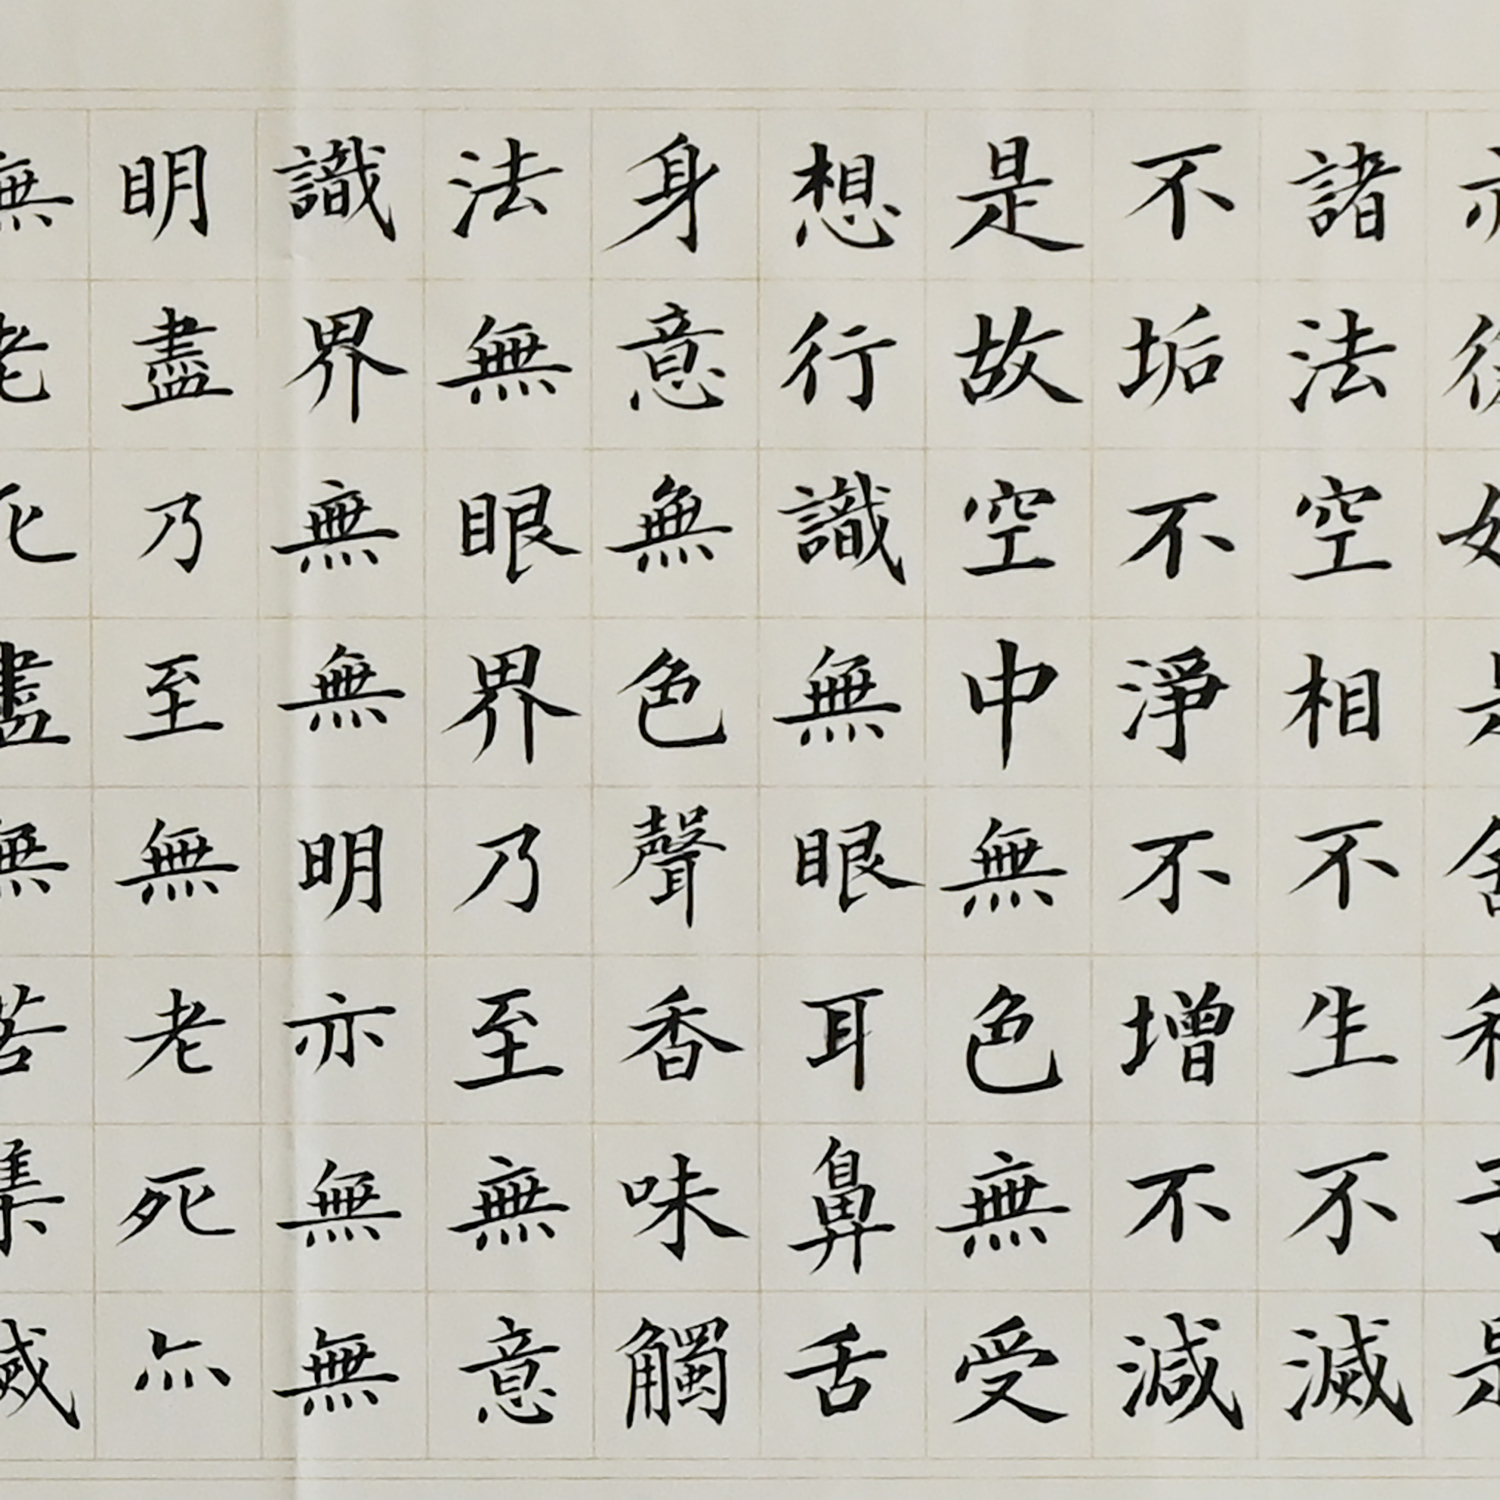 亦復如是舍利子是
諸法空相不生不滅
不垢不淨不增不減
是故空中無色無受
想行識無眼耳鼻舌
身意無色聲香味觸
法無眼界乃至無意
識界無無明亦無無
明盡乃至無老死亦
無老死盡無苦集滅